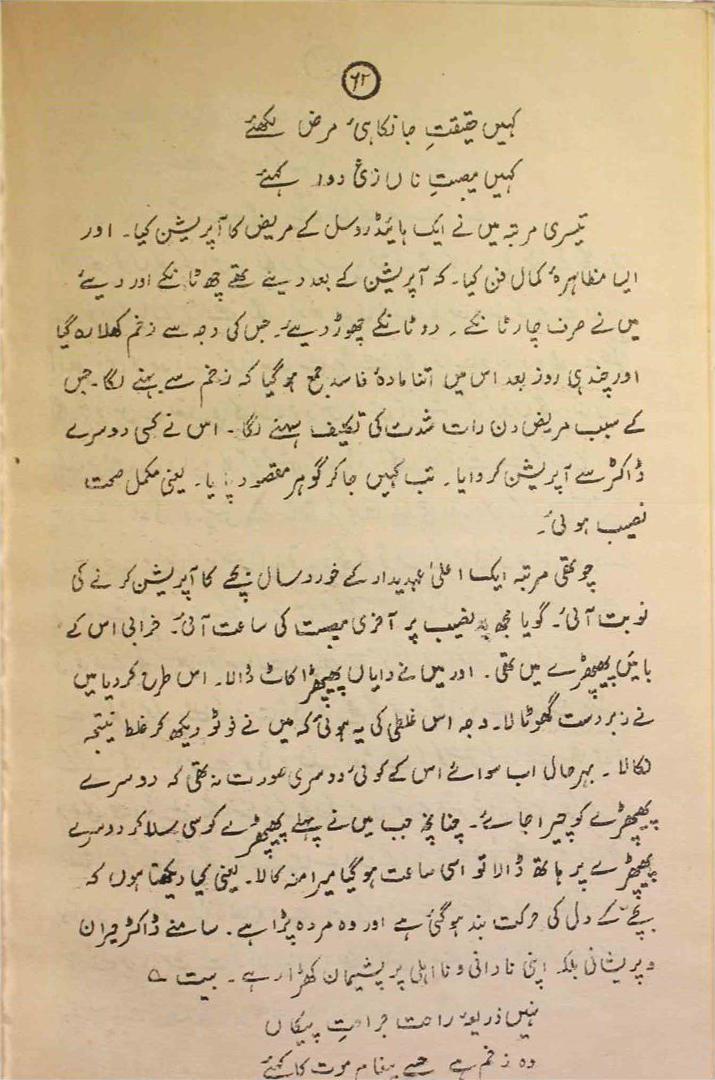 ۶۲
کہیں حقیقتِ جانکاہیٔ مرض لکھئے
کہیں مصیبتِ ناسازیٔ دوا کہئے
تیسری مرتبہ میں نے ایک ہائیڈروسل کے مریض کا آپریشن کیا۔ اور
ایسا مظاہرۂ کمال فن کیا۔ کہ آپریشن کے بعد دینے تھے چھ ٹانکے اور دیئے
میں نے صرف چار ٹانکے۔ دو ٹانکے چھوڑ دیئے۔ جس کی وجہ سے زخم کھلا رہ گیا
اور چند ہی روز بعد اس میں اتنا مادۂ فاسد جمع ہو گیا کہ زخم سے بہنے لگا۔ جس
کے سبب مریض دن رات شدت کی تکلیف سہنے لگا۔ اس نے کسی دوسرے
ڈاکٹر سے آپریشن کروایا۔ تب کہیں جا کر گوہر مقصود پایا۔ یعنی مکمل صحت
نصیب ہوئی۔
چوتھی مرتبہ ایک اعلیٰ عہدیدار کے خورد سال بچے کا آپریشن کرنے کی
نوبت آئی۔ گویا مجھ بدنصیب پر آخری مصیبت کی ساعت آئی۔ خرابی اس کے
بائیں پھیپھڑے میں تھی۔ اور میں نے دایاں پھیپھڑا کاٹ ڈالا۔ اس طرح کر دیا میں
نے زبردست گھوٹالا۔ وجہ اس غلطی کی یہ ہوئی کہ میں نے فوٹو دیکھ کر غلط نتیجہ
نکالا۔ بہرحال اب سوائے اس کے کوئی دوسری صورت نہ تھی کہ دوسرے
پھیپھڑے کو چیرا جائے۔ چنانچہ جب میں نے پہلے پھیپھڑے کو سی سلا کر دوسرے
پھیپھڑے پر ہاتھ ڈالا تو اسی ساعت ہو گیا میرا منہ کالا۔ یعنی کیا دیکھتا ہوں کہ
بچے کے دل کی حرکت بند ہو گئی ہے اور وہ مردہ پڑا ہے۔ سامنے ڈاکٹر حیران
و پریشان بلکہ اپنی نادانی و نااہلی پر پشیمان کھڑا رہے۔ بیت ؎
نہیں ذریعۂ راحت جراحتِ پیکاں
وہ زخم ہے جسے پیغام موت کا کہئے